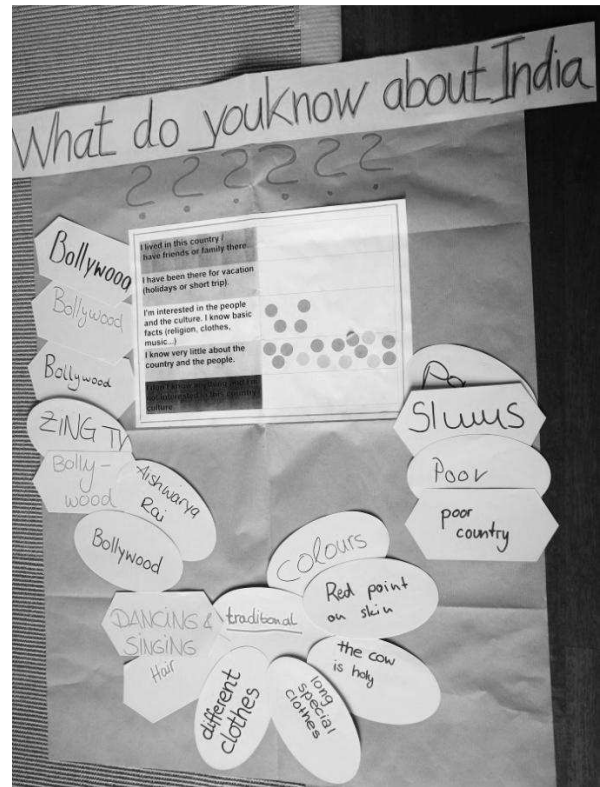 What do you know about India
? ? ? ? ? ?
I lived in this country /
have friends or family there...
I have been there for vacation
(holidays or short trip).
I'm interested in the people
and the culture. I know basic
facts (religion, clothes,
music...)
I know very little about the
country and the people.
culture.
Bollywood
Bollywood
Bollywood
ZING TV
Bolly-
wood
Aishwarya
Rai
Bollywood
DANCING &
SINGING
Hair
traditional
colours
Red point
on skin
the cow
is holy
long
special
clothes
different
clothes
Slums
Poor
poor
country